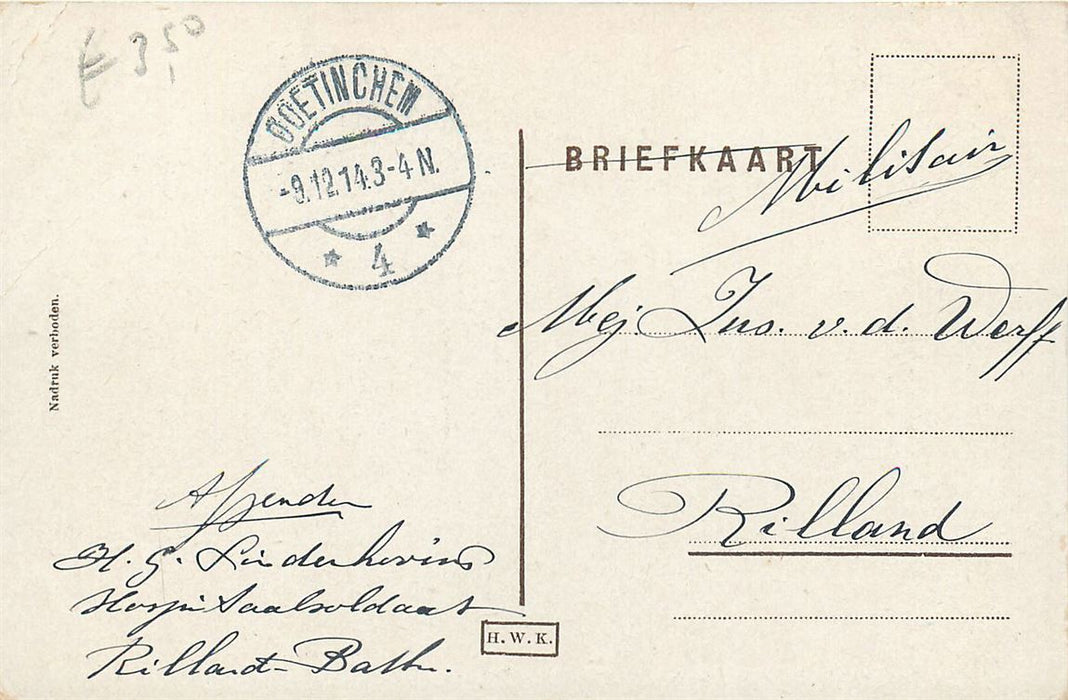 £ 3,50
DOETINCHEM
-9.12.14.3-4 N.
4
BRIEFKAART
Militair
Mej. Jns. v. d. Werff
Rilland
Nadruk verboden.
Afzender
H. G.
Hospitaalsoldaat
Rilland-Bath.
H. W. K.